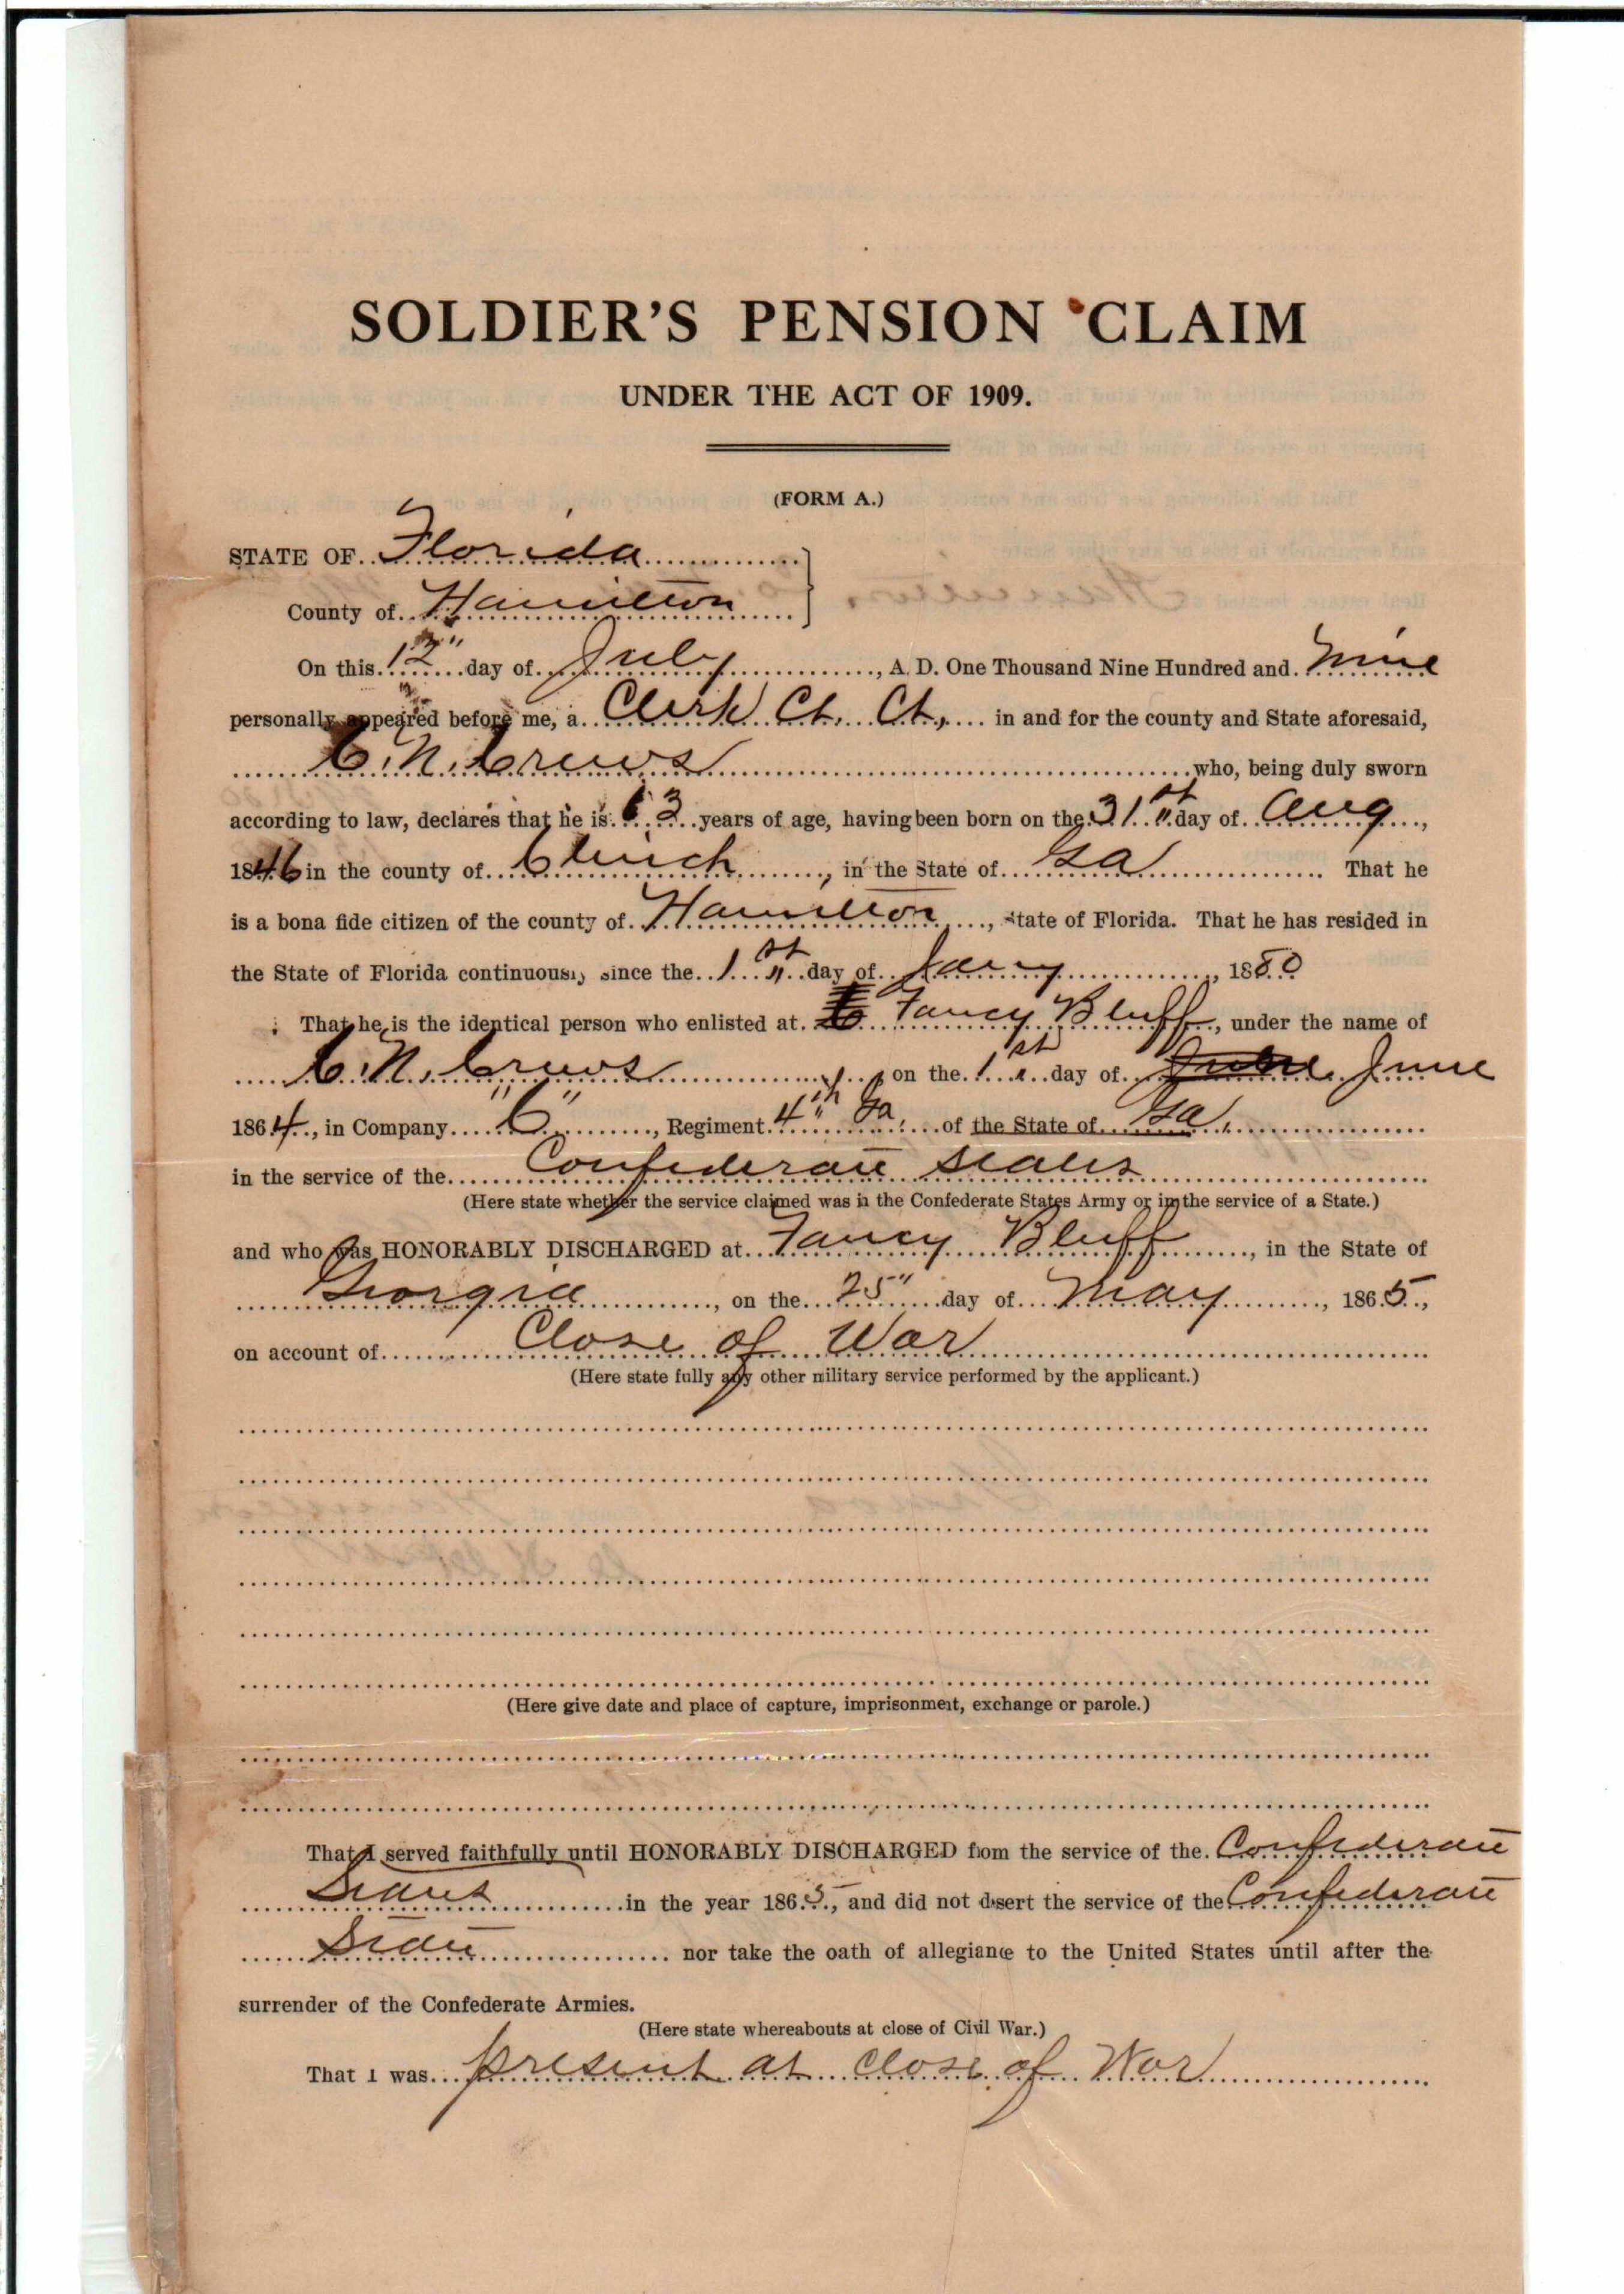 SOLDIER'S PENSION CLAIM
UNDER THE ACT OF 1909.
(FORM A.)
STATE OF Florida
County of Hamilton
On this 12" day of July, A. D. One Thousand Nine Hundred and nine
personally appeared before me, a Clerk Ct. Ct., in and for the county and State aforesaid,
C. N. Crews who, being duly sworn
according to law, declares that he is 63 years of age, having been born on the 31st day of Aug,
1846 in the county of Clinch, in the State of Ga That he
is a bona fide citizen of the county of Hamilton, State of Florida. That he has resided in
the State of Florida continuously since the 1st day of Jany, 1880
That he is the identical person who enlisted at Fancy Bluff, under the name of
C. N. Crews, on the 1st day of June
1864, in Company "C", Regiment 4th Ga. of the State of Ga.
in the service of the Confederate States
(Here state whether the service claimed was in the Confederate States Army or in the service of a State.)
and who was HONORABLY DISCHARGED at Fancy Bluff, in the State of
Georgia, on the 25" day of May, 1865,
on account of Close of War
(Here state fully any other military service performed by the applicant.)
(Here give date and place of capture, imprisonment, exchange or parole.)
That I served faithfully until HONORABLY DISCHARGED from the service of the Confederate
States in the year 1865, and did not desert the service of the Confederate
State nor take the oath of allegiance to the United States until after the
surrender of the Confederate Armies.
(Here state whereabouts at close of Civil War.)
That I was present at Close of War